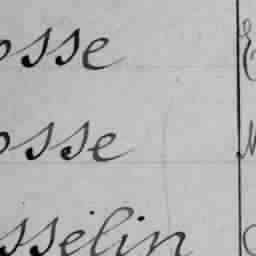 osse
osse
sselin